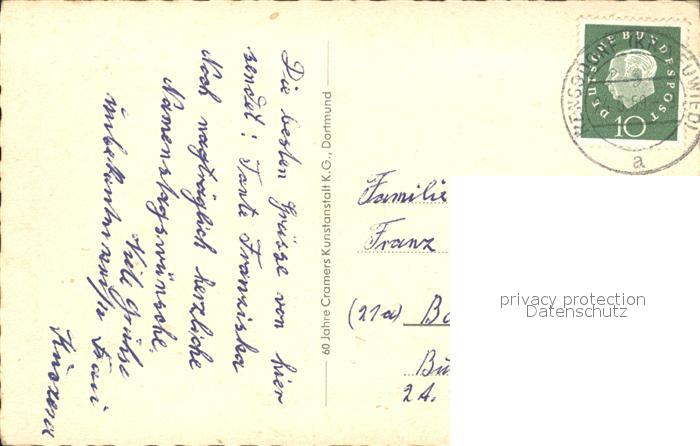 Die besten Grüsse von hier
sendet: Tante Franziska
Noch nagträglich herzliche
Namenstagswünsche.
Viele Grüße
unbekannterweise Frau
60 Jahre Cramers Kunstanstalt K.G., Dortmund
DEUTSCHE BUNDESPOST
10
a
Familie
Franz
(21a) Bo
Bu
2A.
privacy protection
Datenschutz